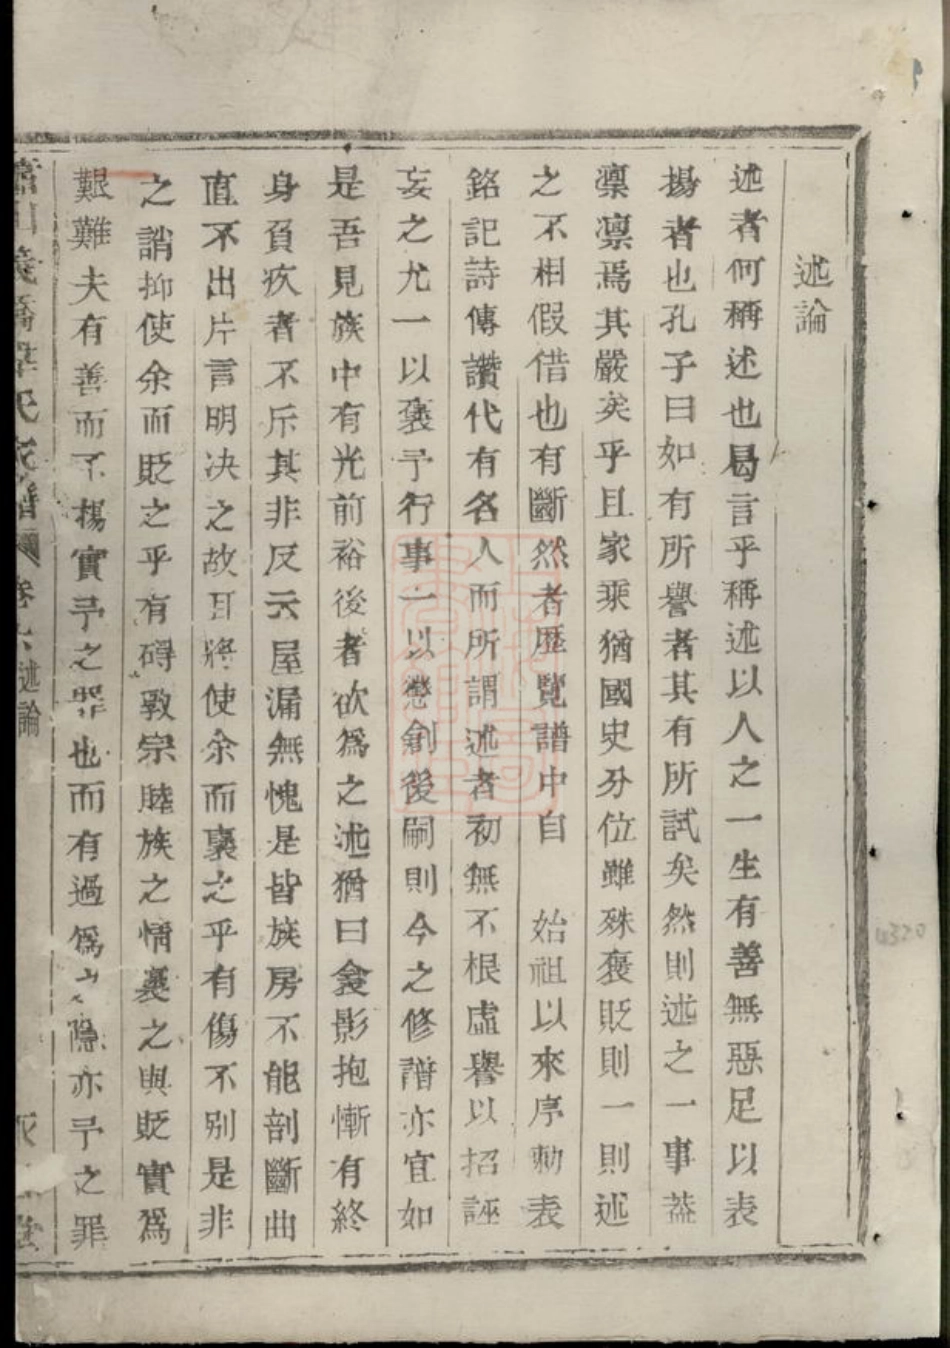 述論
述者何稱述也曷言乎稱述以人之一生有善無惡足以表
揚者也孔子曰如有所譽者其有所試矣然則述之一事蓋
凜凜焉其嚴矣乎且家乘猶國史分位雖殊褒貶則一則述
之不相假借也有斷然者歷覽譜中自 始祖以來序勅表
銘記詩傳讚代有名人而所謂述者初無不根虛譽以招誣
妄之尤一以褒予行事一以懲創後嗣則今之修譜亦宜如
是吾見族中有光前裕後者欲為之述猶曰衾影抱慚有終
身負疚者不斥其非反云屋漏無愧是皆族房不能剖斷曲
直不出片言明决之故耳將使余而襃之乎有傷不别是非
之誚抑使余而貶之乎有碍敦宗睦族之情襃之與貶實為
艱難夫有善而不揚實予之罪也而有過為之隱亦予之罪
蕭山義橋韓氏家譜 卷七 述論